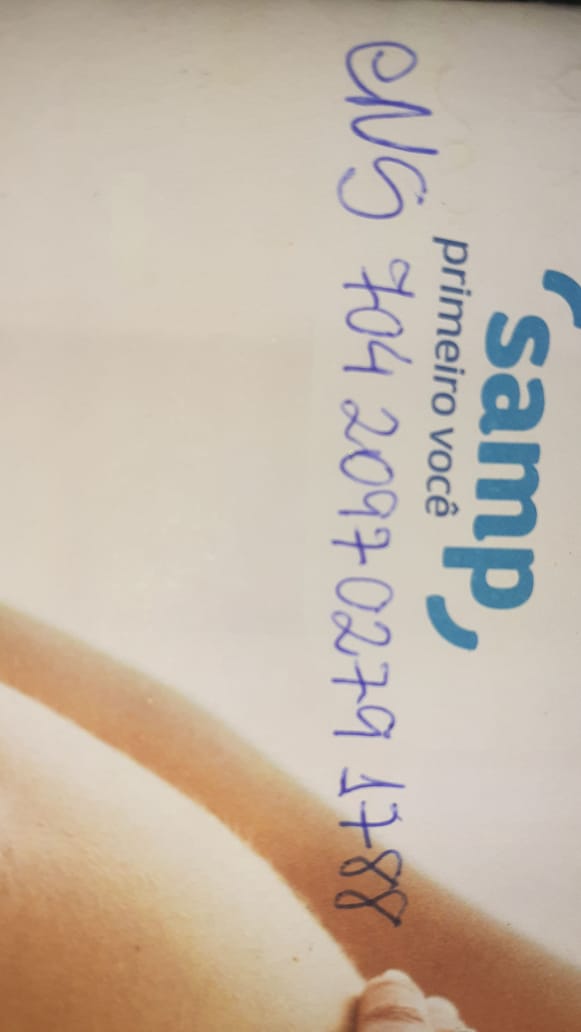 samp
primeiro você
CNS 704 2097 0279 1788